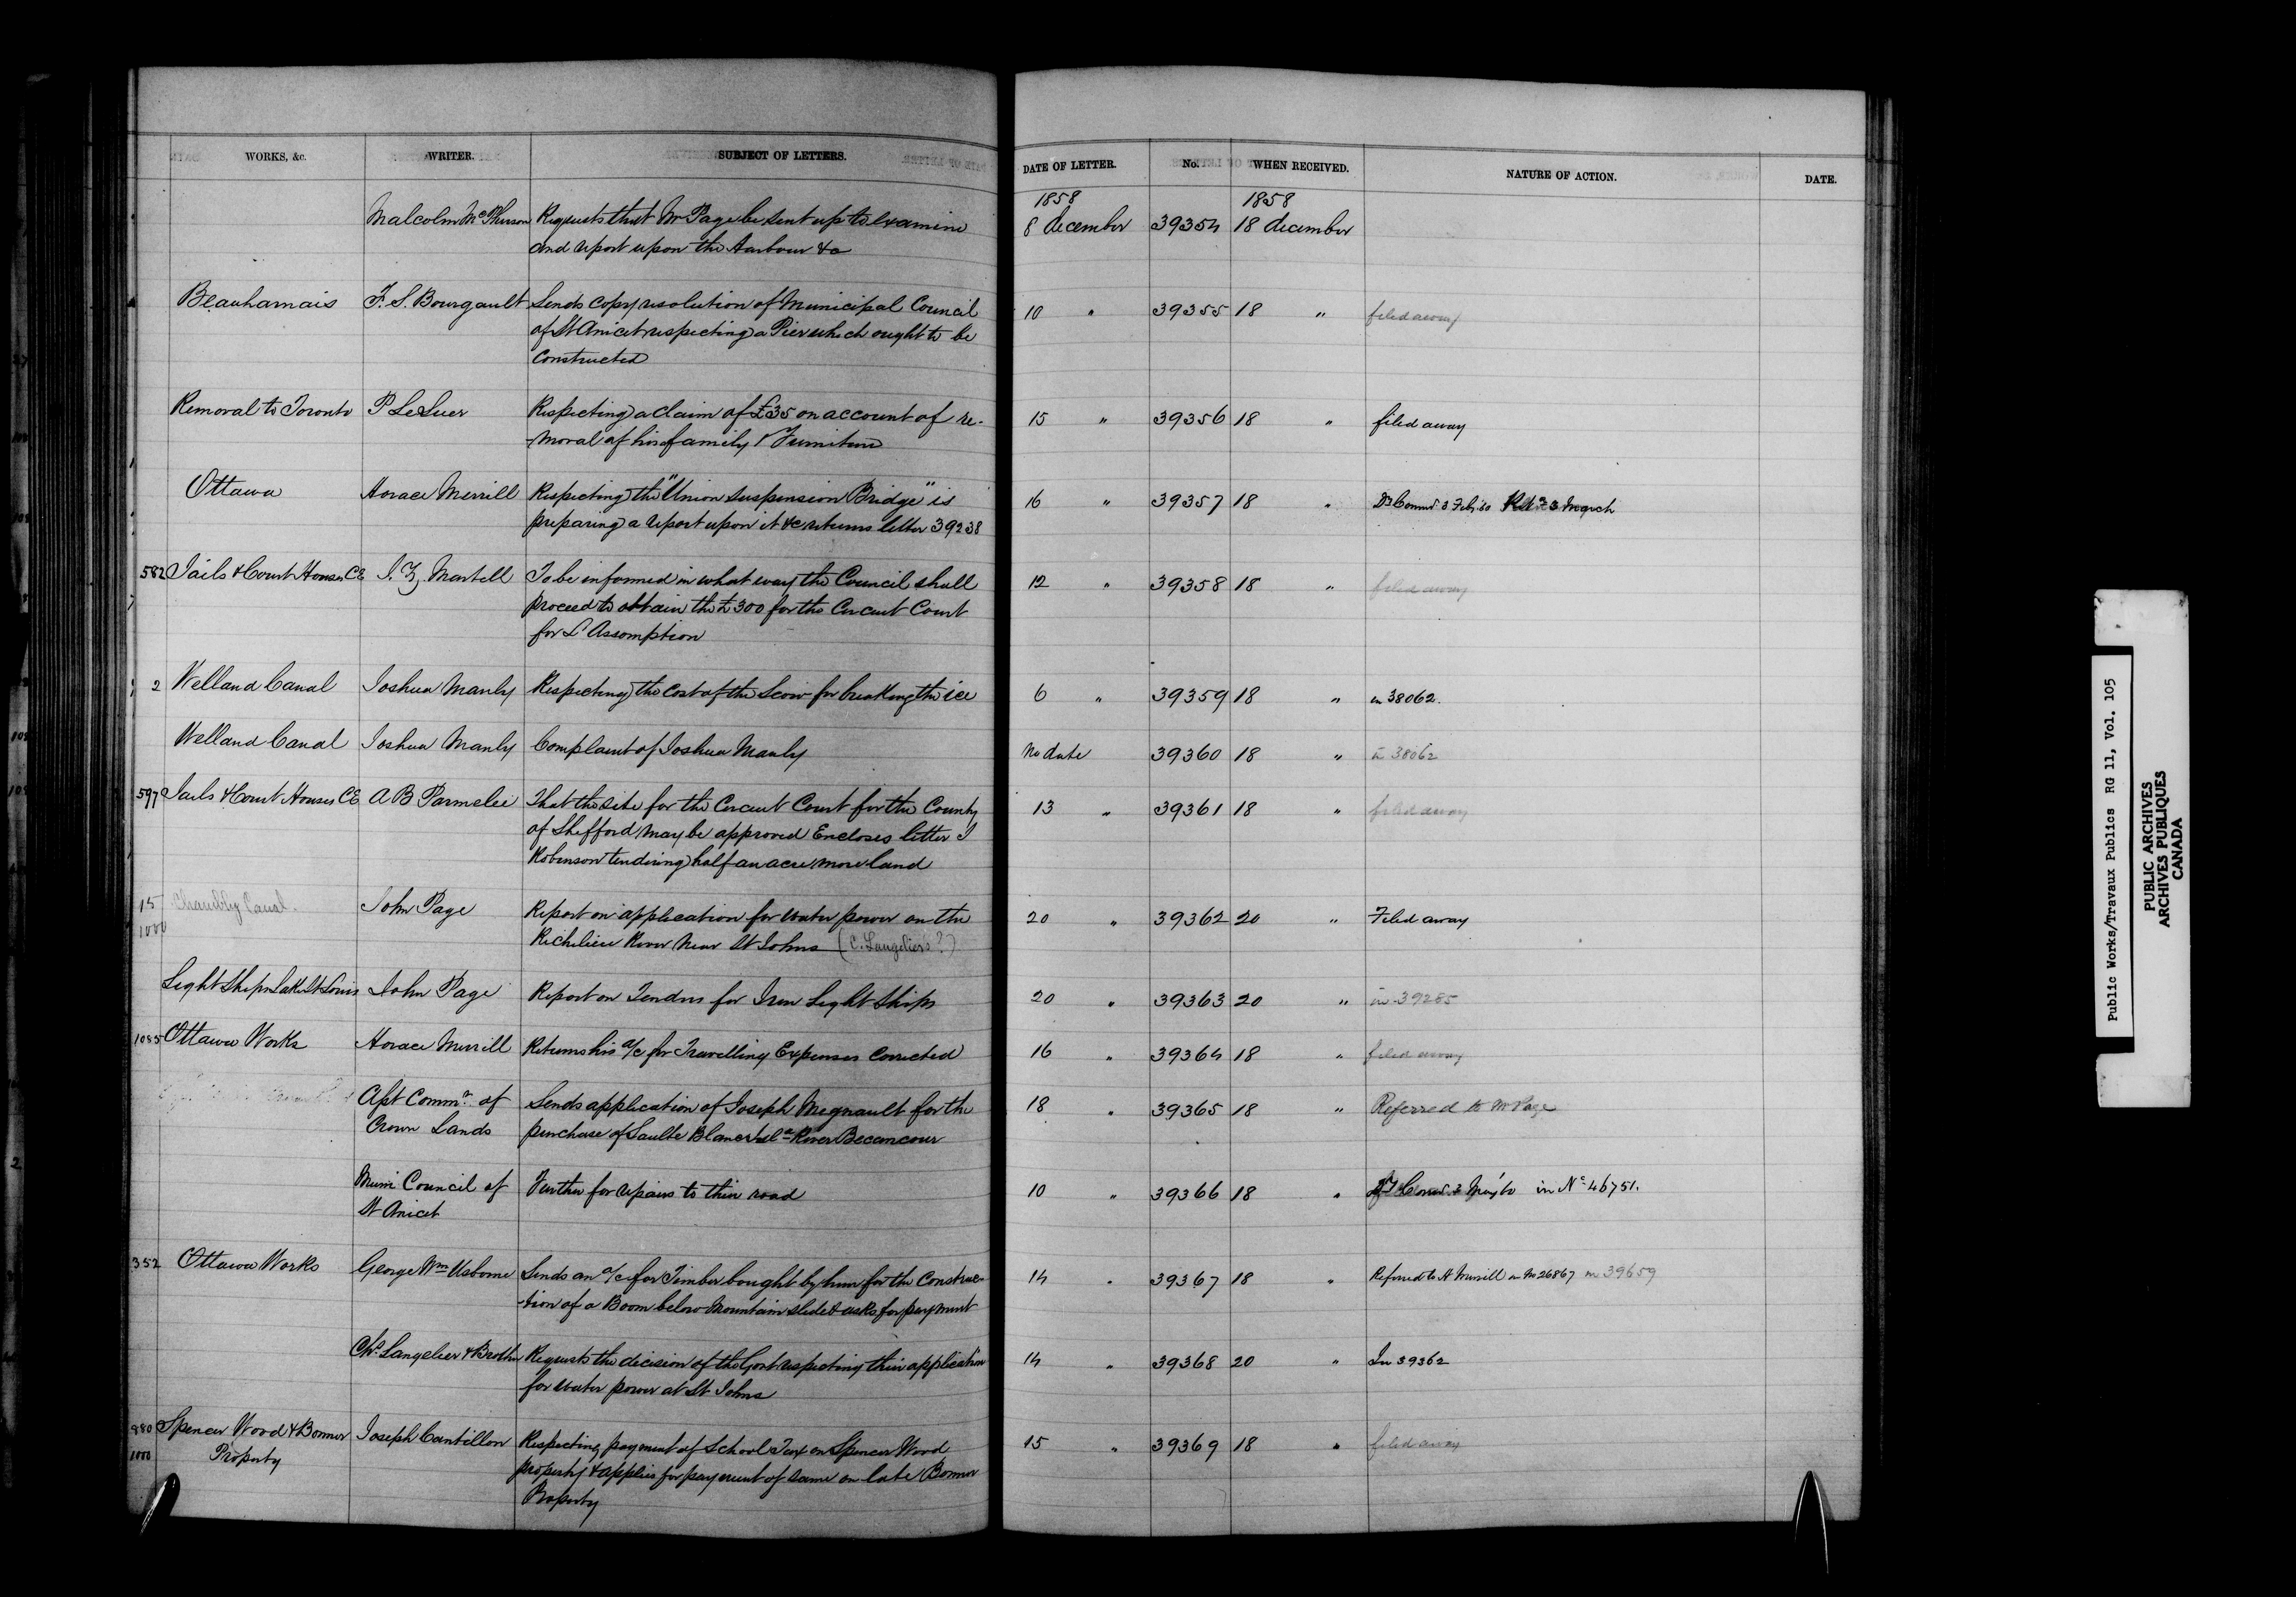 WORKS, &c. WRITER. SUBJECT OF LETTERS. DATE OF LETTER. No. WHEN RECEIVED. NATURE OF ACTION. DATE.
1858 1858
Malcolm McPherson Requests that Mr Page be sent up to examine 8 december 39354 18 december
and report upon the Harbour &c
Beauharnais F. S. Bourgault Sends copy resolution of Municipal Council 10 " 39355 18 " filed away
of St Anicet respecting a Pier which ought to be
constructed
Removal to Toronto P LeSuer Respecting a claim of £35 on account of re- 15 " 39356 18 " filed away
-moval of his family & Furniture
Ottawa Horace Merrill Respecting the "Union Suspension Bridge" is 16 " 39357 18 "
preparing a report upon it &c returns letter 39238
582 Jails & Court Houses CE Martell To be informed in what way the Council shall 12 " 39358 18 " filed away
proceed to obtain the £300 for the Circuit Court
for L'Assomption
2 Welland Canal Joshua Manly Respecting the cost of the Scow for breaking the ice 6 " 39359 18 " in 38062.
Welland Canal Joshua Manly Complaint of Joshua Manly No date 39360 18 " in 38062
597 Jails & Court Houses CE A B Parmelee That the site for the Circuit Court for the County 13 " 39361 18 " filed away
of Shefford may be approved Encloses letter J
Robinson tendering half an acre more land
15 Chambly Canal. John Page Report on application for water power on the 20 " 39362 20 " Filed away
1000 Richelieu River near St Johns (C. Langelier's?)
Light Ships Lake St Louis John Page Report on Tenders for Iron Light Ships 20 " 39363 20 " in 39285
1085 Ottawa Works Horace Merrill Returns his a/c for Travelling Expenses corrected 16 " 39364 18 " filed away
Asst Commr. of Sends application of Joseph Megnault for the 18 " 39365 18 " Referred to Mr Page
Crown Lands purchase of Saulte River Becancour
Muni Council of Further for repairs to their road 10 " 39366 18 " in No 46751.
St Anicet
352 Ottawa Works George Wm Usborne Sends an a/c for Timber bought by him for the construc- 14 " 39367 18 " Referred to H Merrill in No 26867 in 39659
-tion of a Boom below Mountain slide & asks for payment
Chs. Langelier & Brother Requests the decision of the Govt respecting their application 14 " 39368 20 " In 39362
for water power at St Johns
880 Spencer Wood & Bonner Joseph Cantillon Respecting payment of School Tax on Spencer Wood 15 " 39369 18 " filed away
1000 Property property & applies for payment of same on late Bonner
Property
Public Works/Travaux Publics RG 11, Vol. 105
PUBLIC ARCHIVES
ARCHIVES PUBLIQUES
CANADA